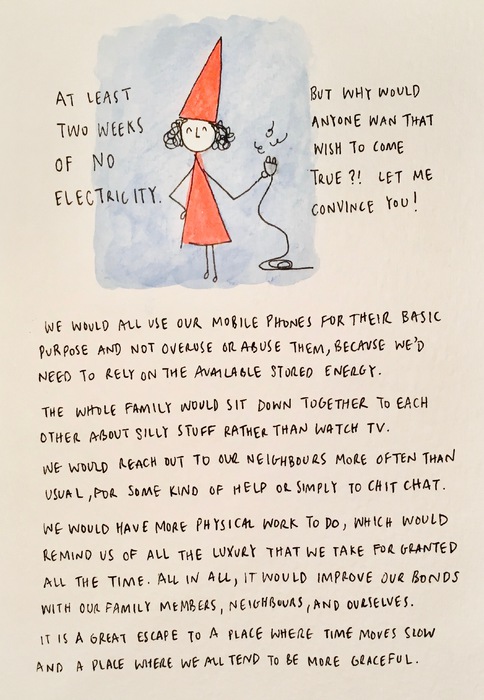 AT LEAST
TWO WEEKS
OF NO
ELECTRICITY.
BUT WHY WOULD
ANYONE WAN THAT
WISH TO COME
TRUE?! LET ME
CONVINCE YOU!
WE WOULD ALL USE OUR MOBILE PHONES FOR THEIR BASIC
PURPOSE AND NOT OVERUSE OR ABUSE THEM, BECAUSE WE'D
NEED TO RELY ON THE AVAILABLE STORED ENERGY.
THE WHOLE FAMILY WOULD SIT DOWN TOGETHER TO EACH
OTHER ABOUT SILLY STUFF RATHER THAN WATCH TV.
WE WOULD REACH OUT TO OUR NEIGHBOURS MORE OFTEN THAN
USUAL, FOR SOME KIND OF HELP OR SIMPLY TO CHIT CHAT.
WE WOULD HAVE MORE PHYSICAL WORK TO DO, WHICH WOULD
REMIND US OF ALL THE LUXURY THAT WE TAKE FOR GRANTED
ALL THE TIME. ALL IN ALL, IT WOULD IMPROVE OUR BONDS
WITH OUR FAMILY MEMBERS, NEIGHBOURS, AND OURSELVES.
IT IS A GREAT ESCAPE TO A PLACE WHERE TIME MOVES SLOW
AND A PLACE WHERE WE ALL TEND TO BE MORE GRACEFUL.